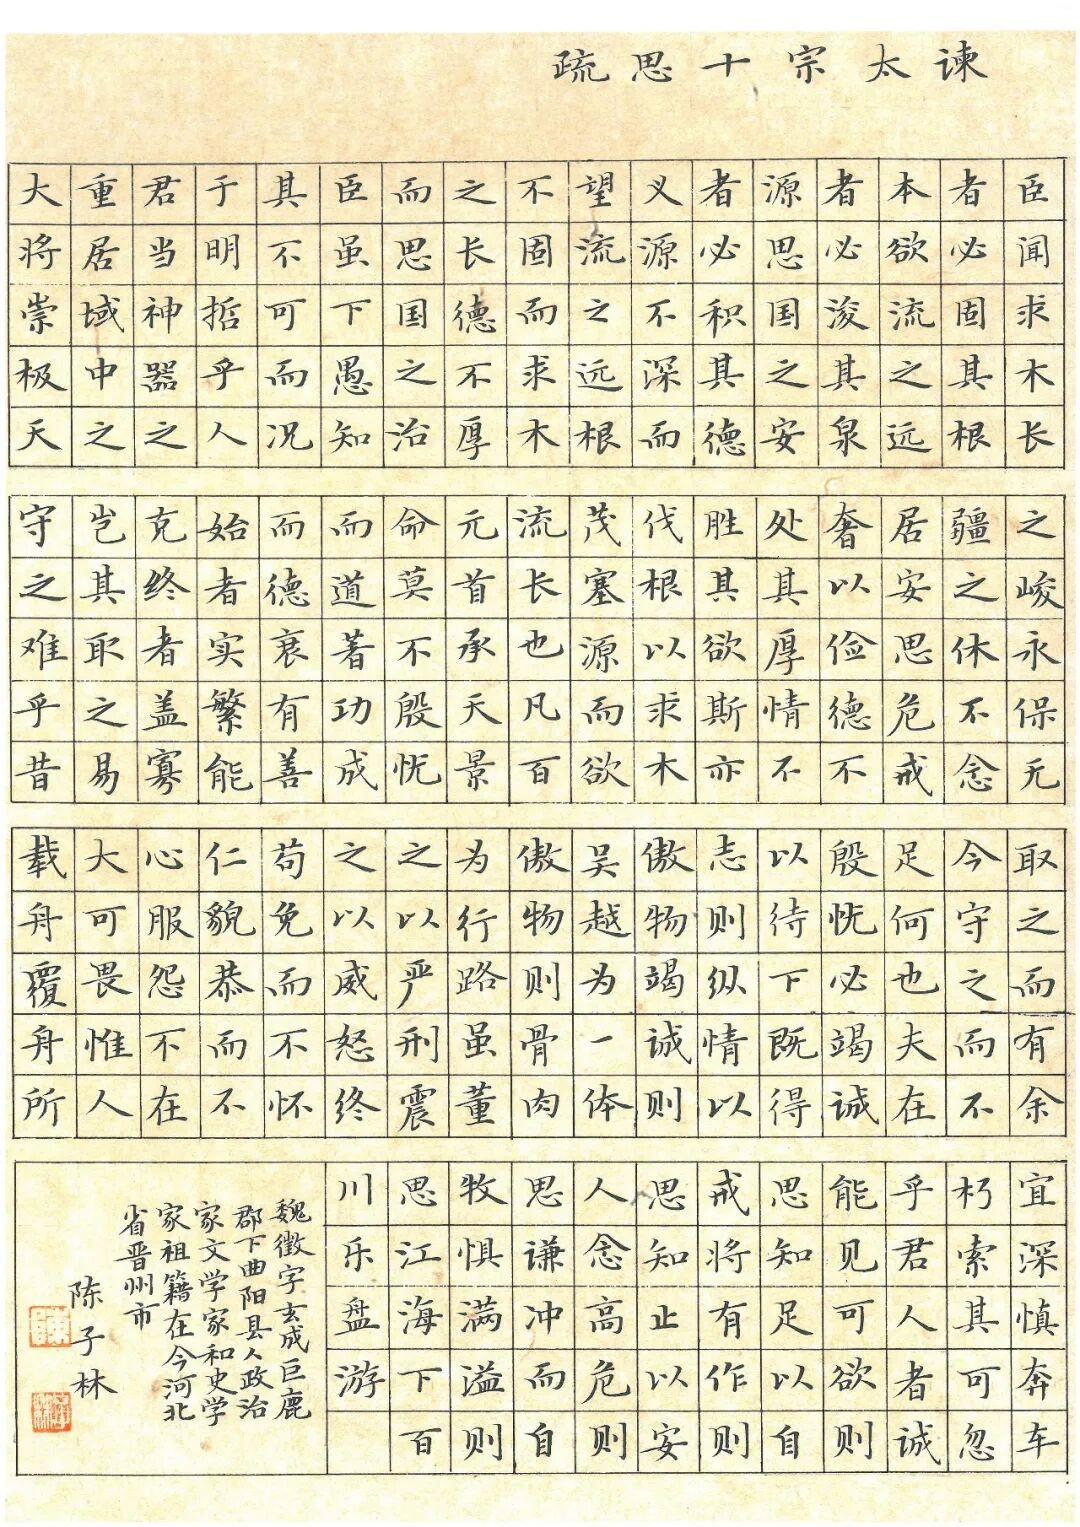 谏太宗十思疏
臣闻求木长
者必固其根
本欲流之远
者必浚其泉
源思国之安
者必积其德
义源不深而
望流之远根
不固而求木
之长德不厚
而思国之治
臣虽下愚知
其不可而况
于明哲乎人
君当神器之
重居域中之
大将崇极天
之峻永保无
疆之休不念
居安思危戒
奢以俭德不
处其厚情不
胜其欲斯亦
伐根以求木
茂塞源而欲
流长也凡百
元首承天景
命莫不殷忧
而道著功成
而德衰有善
始者实繁能
克终者盖寡
岂其取之易
守之难乎昔
取之而有余
今守之而不
足何也夫在
殷忧必竭诚
以待下既得
志则纵情以
傲物竭诚则
吴越为一体
傲物则骨肉
为行路虽董
之以严刑震
之以威怒终
苟免而不怀
仁貌恭而不
心服怨不在
大可畏惟人
载舟覆舟所
宜深慎奔车
朽索其可忽
乎君人者诚
能见可欲则
思知足以自
戒将有作则
思知止以安
人念高危则
思谦冲而自
牧惧满溢则
思江海下百
川乐盘游
魏徵字玄成巨鹿
郡下曲阳县人政治
家文学家和史学
家祖籍在今河北
省晋州市
陈子林